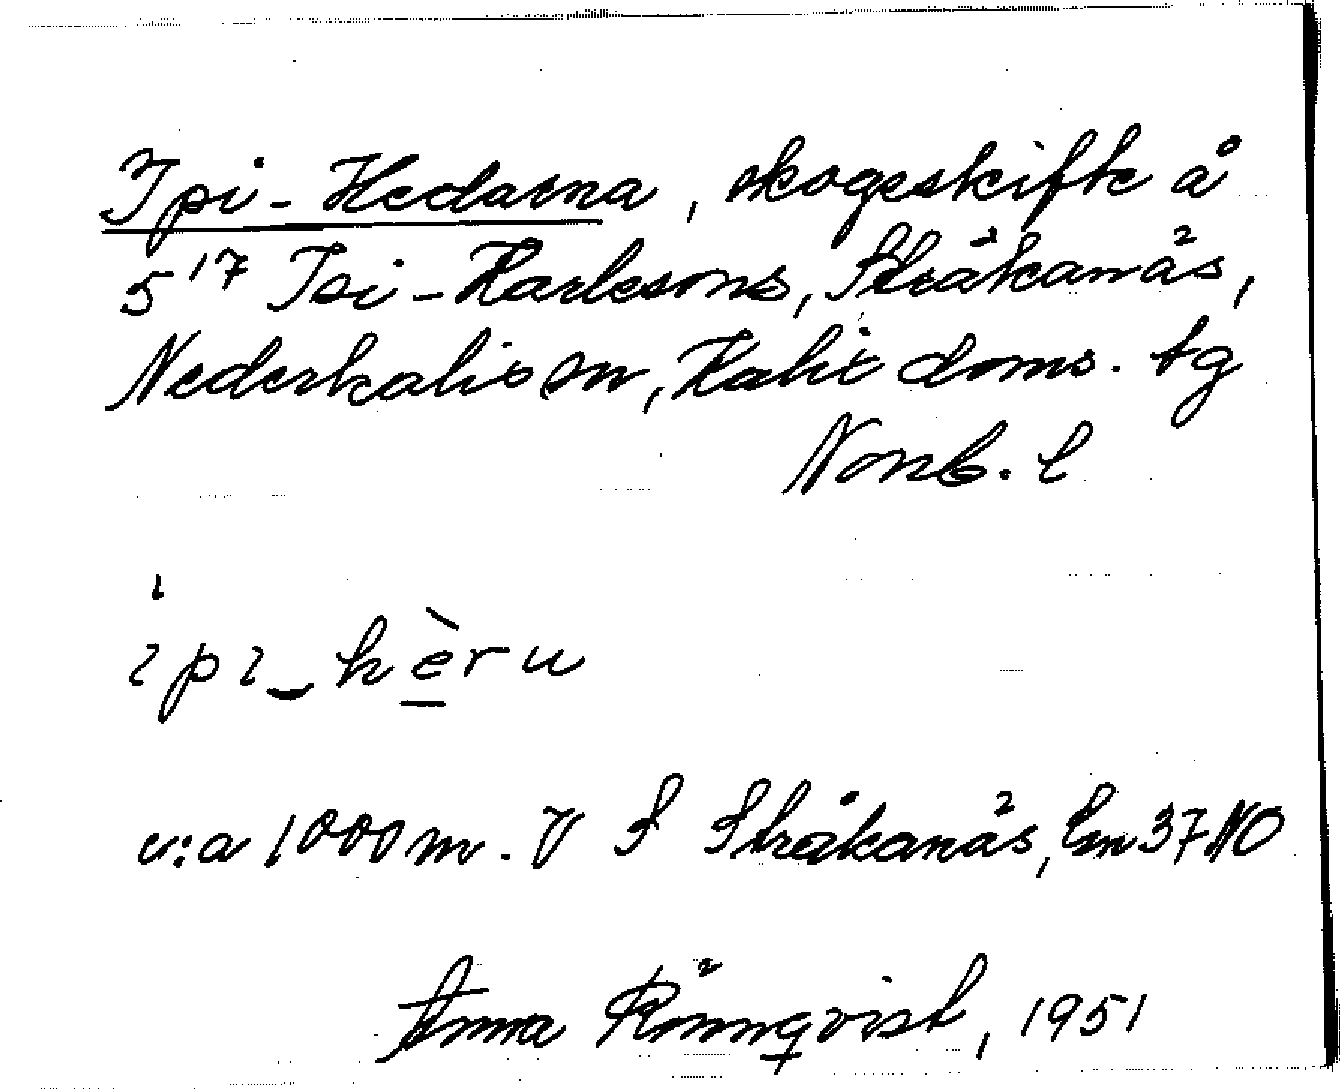 Ipi-Hedarna, skogsskifte å
5¹⁷ Isi-Karlsons, Stråkanäs,
Nederkalix sn, Kalix doms. tg
Norrb. l
ipi‿hèru
c:a 1000 m. V S Stråkanäs, Gm 37 NO
Anna Rönnqvist, 1951